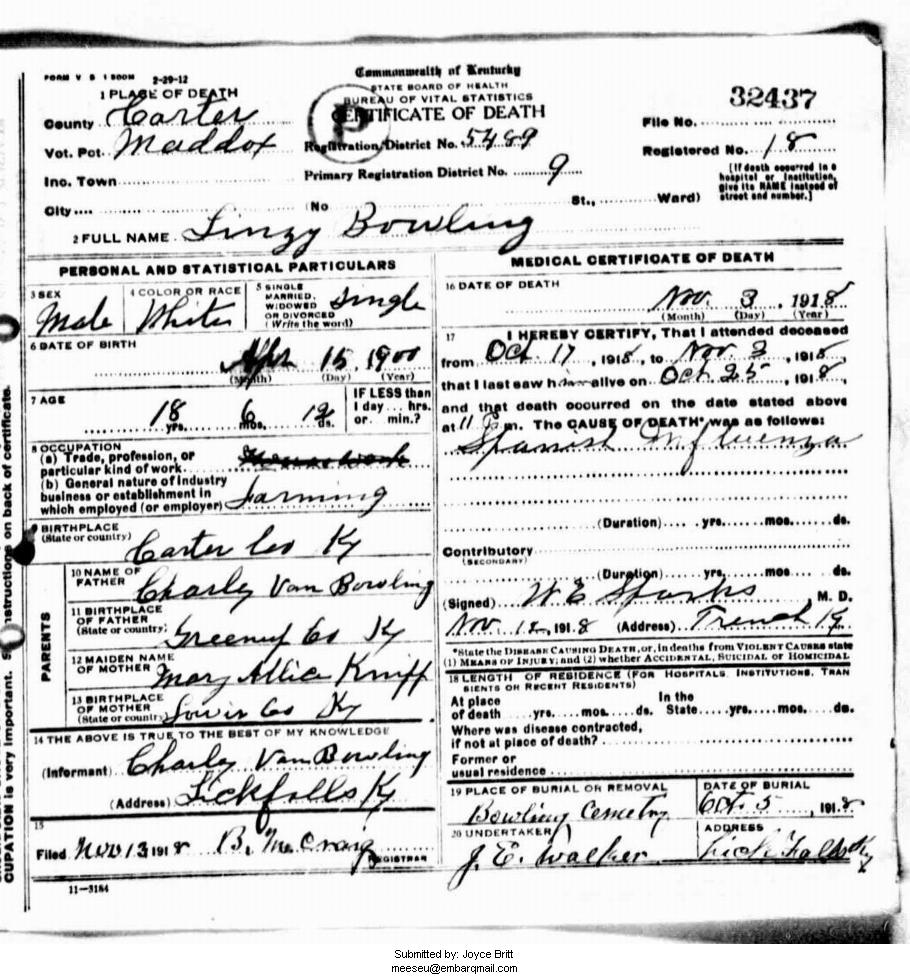 FORM V S 1 500M 2-29-12
Commonwealth of Kentucky
STATE BOARD OF HEALTH
BUREAU OF VITAL STATISTICS
CERTIFICATE OF DEATH
P
32437
1 PLACE OF DEATH
County Carter
Vot. Pct. Maddox
Registration District No. 5489
File No.
Registered No. 18
Inc. Town
Primary Registration District No. 9
[If death occurred in a
hospital or institution,
give its NAME instead of
street and number.]
City (No St., Ward)
2 FULL NAME Linzy Bowling
PERSONAL AND STATISTICAL PARTICULARS
3 SEX Male
4 COLOR OR RACE White
5 SINGLE
MARRIED,
WIDOWED
OR DIVORCED
(Write the word) Single
6 DATE OF BIRTH
Apr 15, 1900
(Month) (Day) (Year)
7 AGE
18 yrs. 6 mos. ds.
IF LESS than
1 day ... hrs.
or ... min.?
8 OCCUPATION
(a) Trade, profession, or
particular kind of work
(b) General nature of industry
business or establishment in
which employed (or employer) Farming
9 BIRTHPLACE
(State or country)
Carter Co Ky
PARENTS
10 NAME OF
FATHER Charley Van Bowling
11 BIRTHPLACE
OF FATHER
(State or country) Greenup Co Ky
12 MAIDEN NAME
OF MOTHER Mary Allice
13 BIRTHPLACE
OF MOTHER
(State or country) Co Ky
14 THE ABOVE IS TRUE TO THE BEST OF MY KNOWLEDGE
(Informant) Charley Van Bowling
(Address) Lickfalls Ky
15
Filed Nov 13 1918 B. McCraig
REGISTRAR
11-3184
MEDICAL CERTIFICATE OF DEATH
16 DATE OF DEATH
Nov. 3, 1918
(Month) (Day) (Year)
17 I HEREBY CERTIFY, That I attended deceased
from Oct. 17, 1918, to Nov. 3, 1918,
that I last saw him alive on Oct. 25, 1918,
and that death occurred on the date stated above
at 11 m. The CAUSE OF DEATH* was as follows:
Spanish Influenza
(Duration) yrs. mos. ds.
Contributory
(SECONDARY)
(Duration) yrs. mos. ds.
(Signed) W E Sparks M. D.
Nov. 12, 1918 (Address) Ky.
*State the DISEASE CAUSING DEATH, or, in deaths from VIOLENT CAUSES state
(1) MEANS OF INJURY; and (2) whether ACCIDENTAL, SUICIDAL or HOMICIDAL
18 LENGTH OF RESIDENCE (FOR HOSPITALS, INSTITUTIONS, TRAN
SIENTS OR RECENT RESIDENTS)
At place
of death yrs. mos. ds.
In the
State yrs. mos. ds.
Where was disease contracted,
if not at place of death?
Former or
usual residence
19 PLACE OF BURIAL OR REMOVAL
Bowling Cemetry
DATE OF BURIAL
Oct. 5, 1918
20 UNDERTAKER
J. E. Walker
ADDRESS
Lick Falls Ky
CUPATION is very important. See instructions on back of certificate.
Submitted by: Joyce Britt
meeseu@embarqmail.com